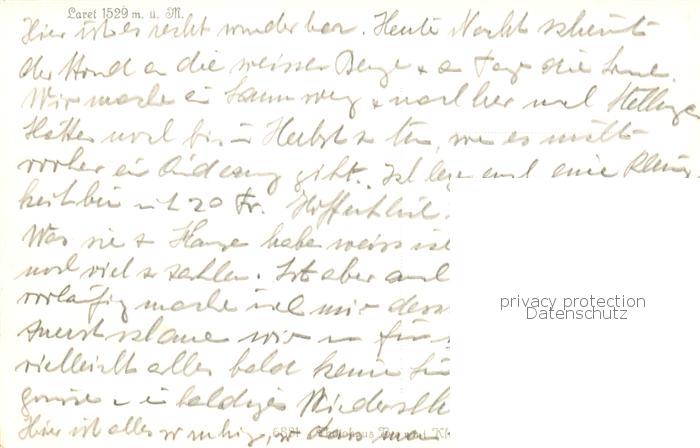 Laret 1529 m. ü. M.
Hier ist es recht wunderbar. Heute Nacht scheint
der Mond an die weissen Berge + a Tag die Sonne.
Wir mache ei weg + nachher
Hatte noch bis Herbst zu tun, wen es nicht
vorher ein Änderung gibt. Ich lege auch eine Klein-
keit bei mit 20 Fr. Hoffentlich
Was sie z Hause habe weiss ich
noch viel z zahlen. Ist aber auch
vorläufig mache ich mir
Zuerst schaue wir
vielleicht alles bald keine
grüsse baldiges Wiederseh
Hier ist alles so ruhig, so dass man
privacy protection
Datenschutz